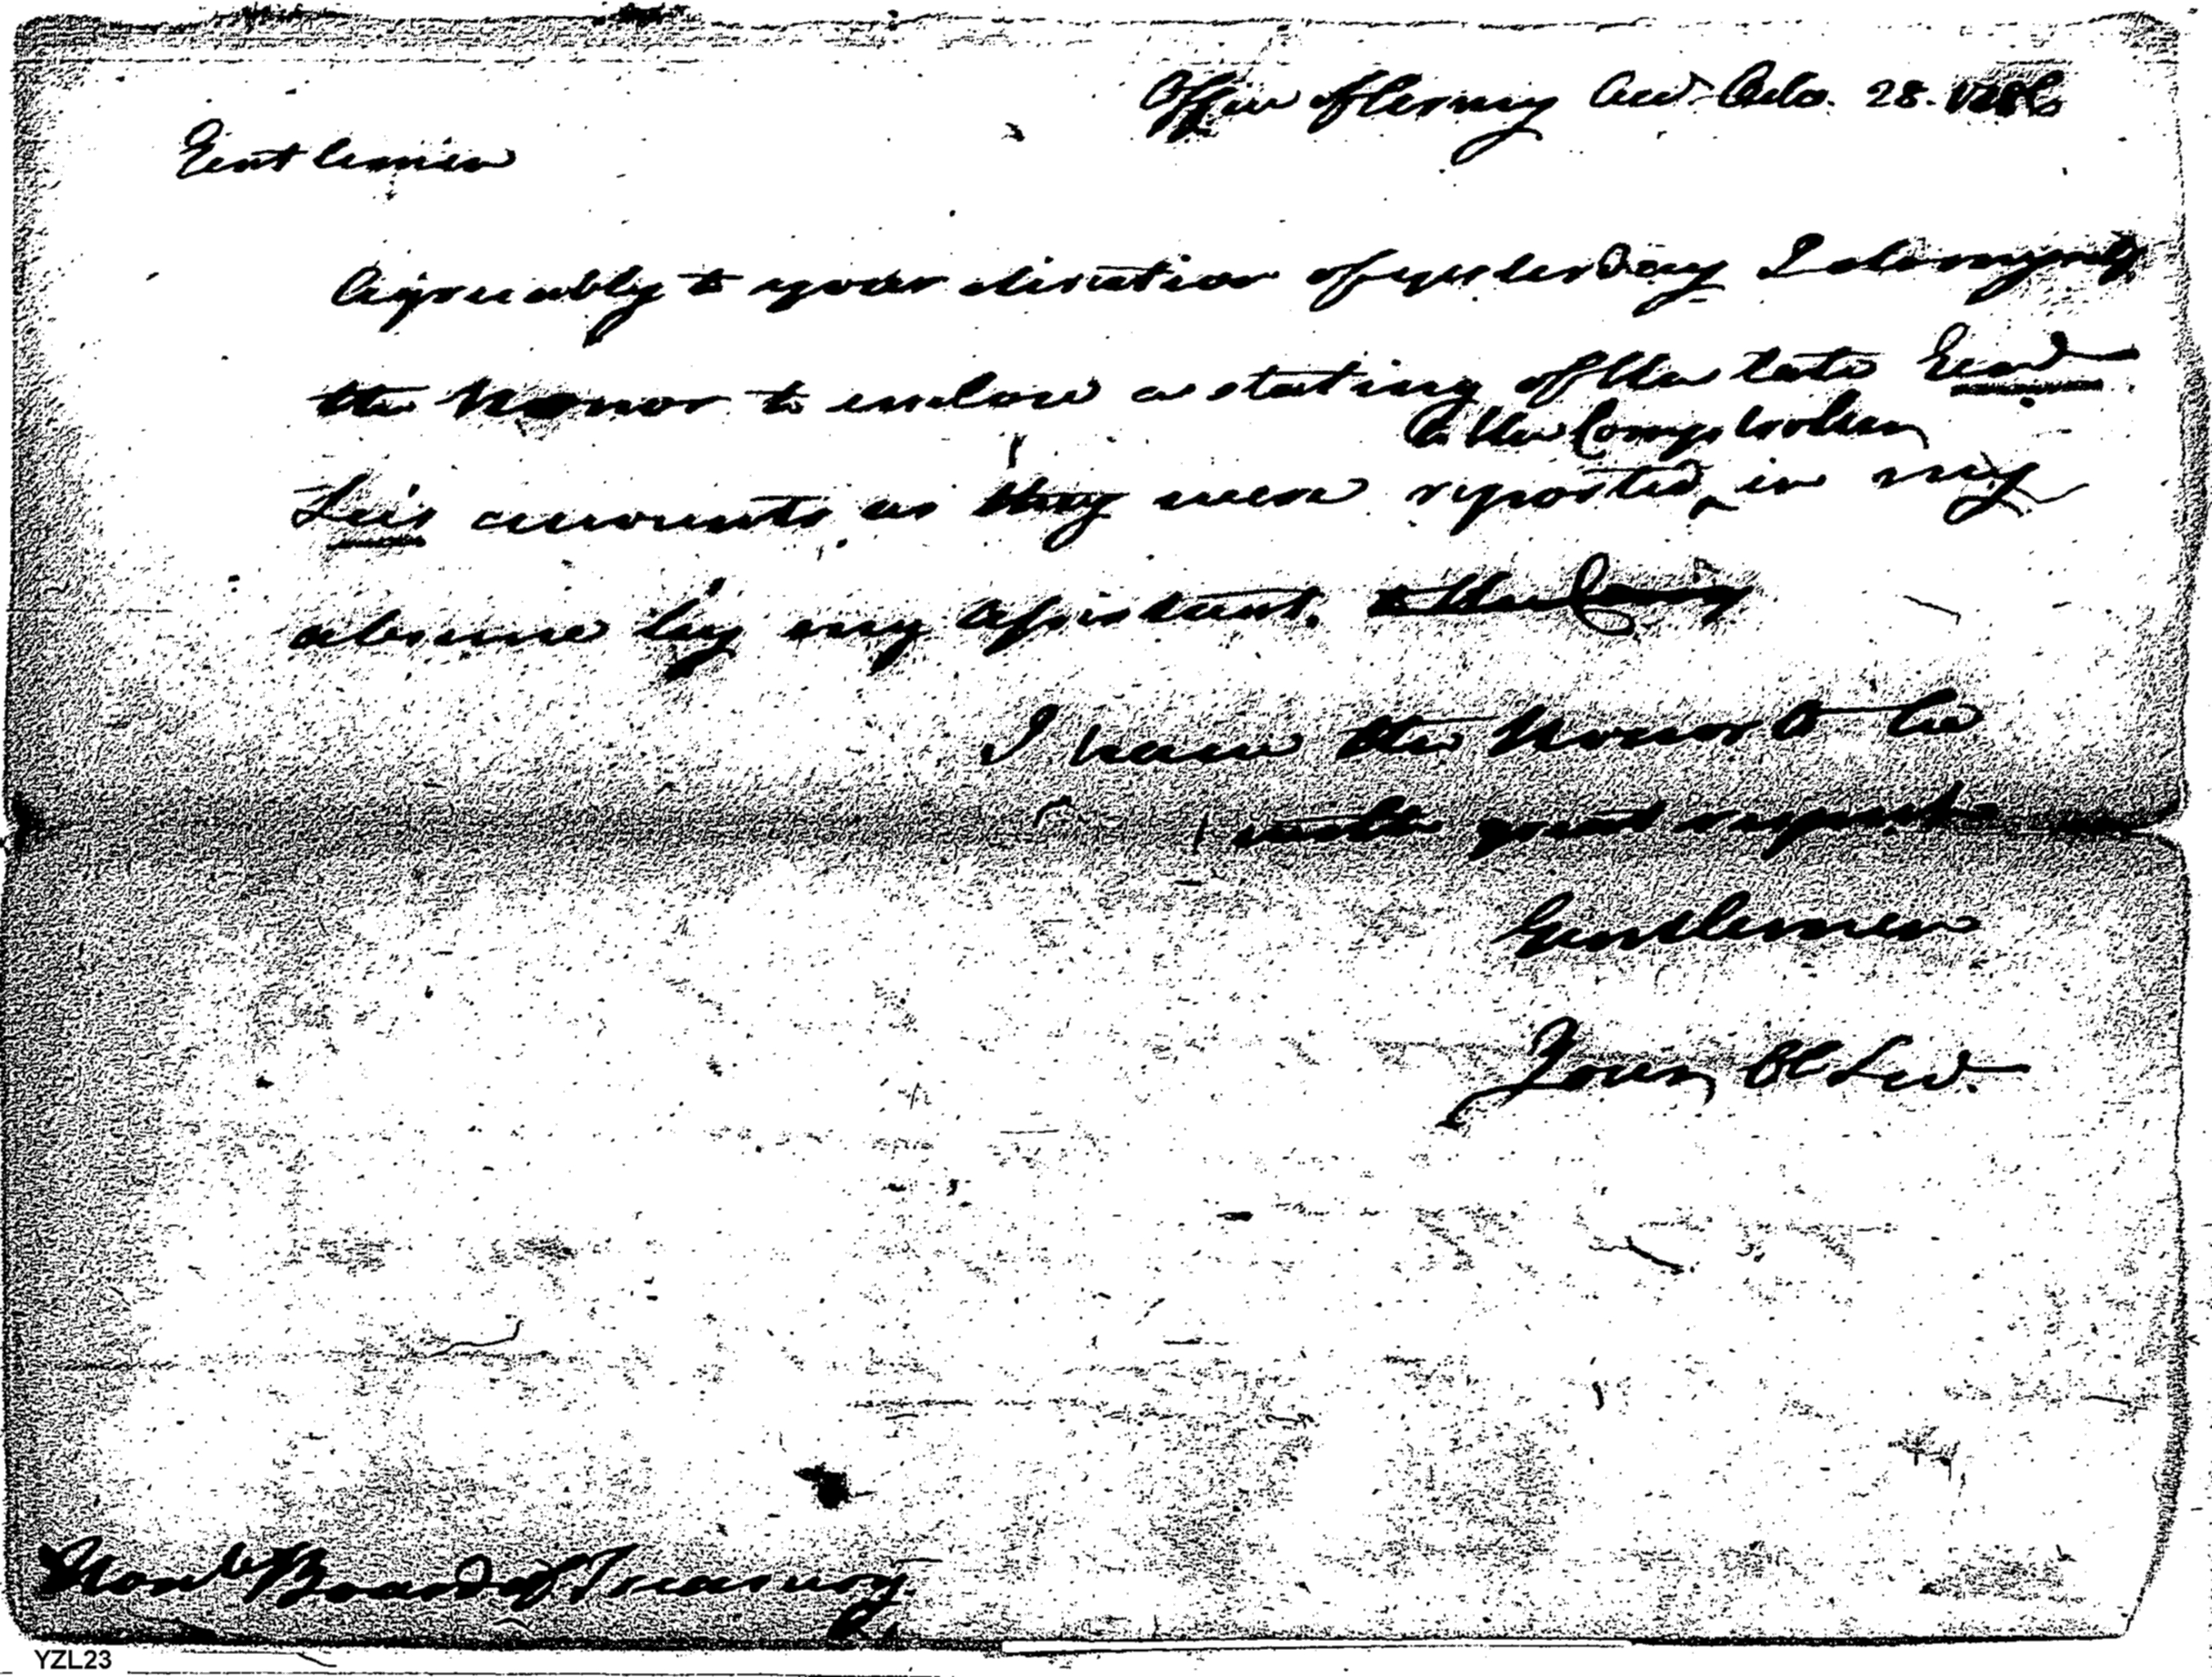 Office of Army Acct. Octo. 28. 1786
Gentlemen
Agreeably to your direction of yesterday I do myself
the Honor to enclose a stating of the late Genl
to the Comptroller
Lee's accounts as they were reported in my
absence by my Assistant. to the Comp
I have the Honor to be
with great respect
Gentlemen
Your Ob Serv.
Honble Board of Treasury.
YZL23